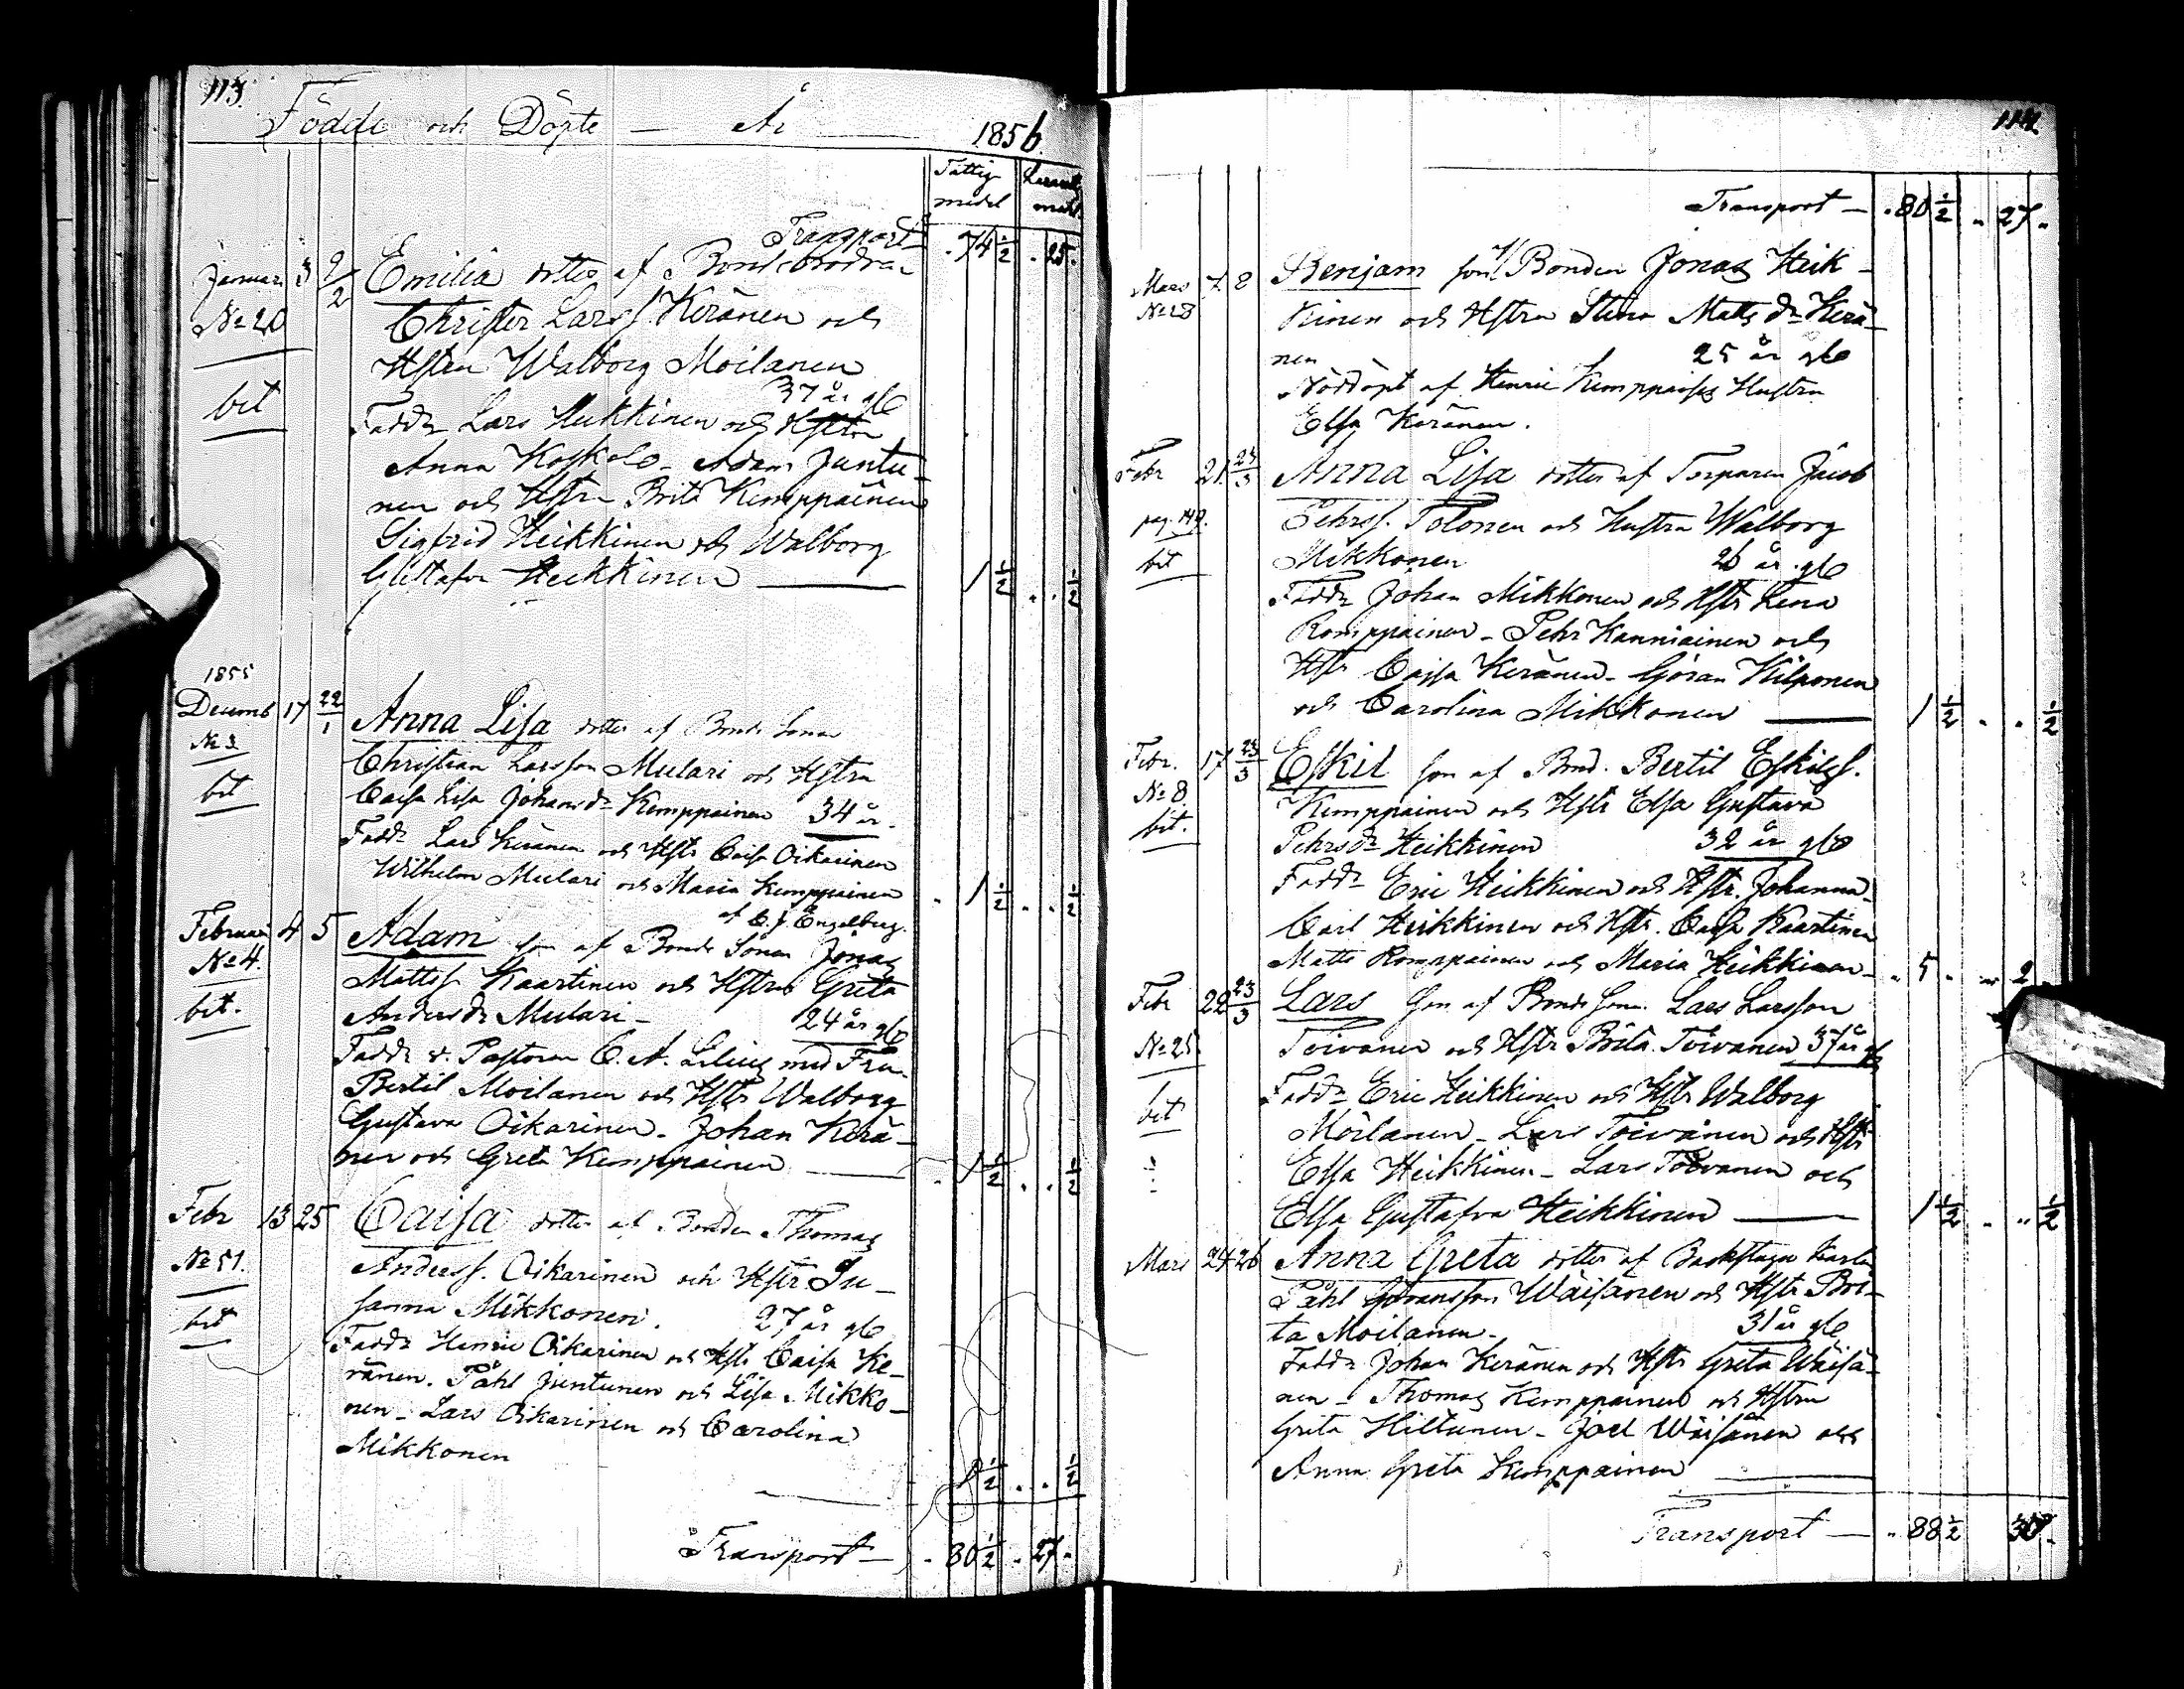 113.
Födde och Döpte — År 1856.
Fattig medel
Transport — . 74 1/2 . 25.
Januari 3 2/2 Emilia dotter af Bondebrodren
No 20 Christer Larss. Keränen och
Hstru Walborg Moilanen
bet 37 år gl
Faddr Lars Heikkinen och Hstru
Anna Koskelo - Adam Juntu-
nen och Hstru Brita Kemppainen
Sigfrid Heikkinen och Walborg
Gustafva Heikkinen — 1 1/2 . . 1/2
1855
Decemb 17 22/1 Anna Lisa dotter af Bonde Sonen
No 3 Christian Larsson Mulari och Hstru
bet Caisa Lisa Johansdr Kemppainen 34 år.
Faddr Lars Keränen och Hstr Caisa Oikarinen
Wilhelm Mulari och Maria Kemppainen . 1 1/2 . . 1/2
af C. J. Engelberg.
Februari 4 5 Adam Son af Bonde Sonen Jonas
No 4. Mattss. Kaartinen och Hstru Greta
bet. Andersdr Mulari - 24 år gl
Faddr v. Pastorn C. A. Lilius med Fru.
Bertil Moilanen och Hstr Walborg
Gustava Oikarinen - Johan Kerä-
nen och Greta Kemppainen — . 1 1/2 . . 1/2
Febr 13 25 Caisa dotter af Bonden Thomas
No 51. Anderss. Oikarinen och Hstr Su-
sanna Mikkonen. 27 år gl
bet Faddr Henric Oikarinen och Hstr Caisa Ke-
ränen. Påhl Juntunen och Lisa Mikko-
nen - Lars Oikarinen och Carolina
Mikkonen 1 1/2 . . 1/2
Transport — . 80 1/2 . 27.
114.
Transport — . 80 1/2 . 27.
Mars 7 8 Benjam son af Bonden Jonas Heik-
No 28 kinen och Hstru Stina Matts dr Kerä-
nen 25 år gl
Nöddöpt af Henric Kemppaises Hustru
Elsa Keränen.
Febr 21. 23/3 Anna Lisa dotter af Torparen Jacob
pag. 149. Pehrss. Tolonen och Hustru Walborg
bet Mikkonen 26 år gl
Faddr Johan Mikkonen och Hstr Lena
Romppainen - Pehr Kanniainen och
Hstr Caisa Keränen - Göran Kilponen
och Carolina Mikkonen — 1 1/2 . . 1/2
Febr. 17 23/3 Eskil Son af Bond. Bertil Eskilss.
No 8. Kemppainen och Hstr Elsa Gustava
bet. Pehrsdr Heikkinen 32 år gl
Faddr Eric Heikkinen och Hstr. Johanna
Carl Heikkinen och Hstr. Caisa Kaartinen
Matts Romppainen och Maria Heikkinen - . 5 . . 2
Febr 22 23/3 Lars Son af Bonde Sonen Lars Larsson
No 25. Toivanen och Hstr Brita Toivanen 37 år gl
Faddr Eric Heikkinen och Hstr Walborg
bet Moilanen - Lars Toivanen och Hstr
Elsa Heikkinen - Lars Toivanen och
Elsa Gustafva Heikkinen — 1 1/2 . . 1/2
Mars 24 26 Anna Greta dotter af Backstugu Karlen
Påhl Göransson Wäisänen och Hstr Bri-
ta Moilanen - 31 år gl
Faddr Johan Keränen och Hstr Greta Wäisä-
nen - Thomas Kemppainen och Hstru
Greta Hiltunen - Joel Wäisänen och
Anna Greta Kemppainen —
Transport — . 88 1/2 30.